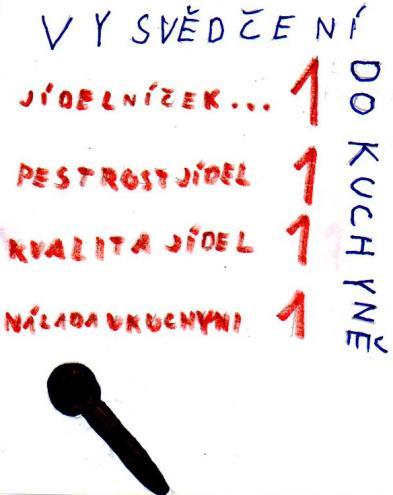 VYSVĚDČENÍ
DO KUCHYNĚ
JÍDELNÍČEK... 1
PESTROST JÍDEL 1
KVALITA JÍDEL 1
NÁLADA V KUCHYNI 1